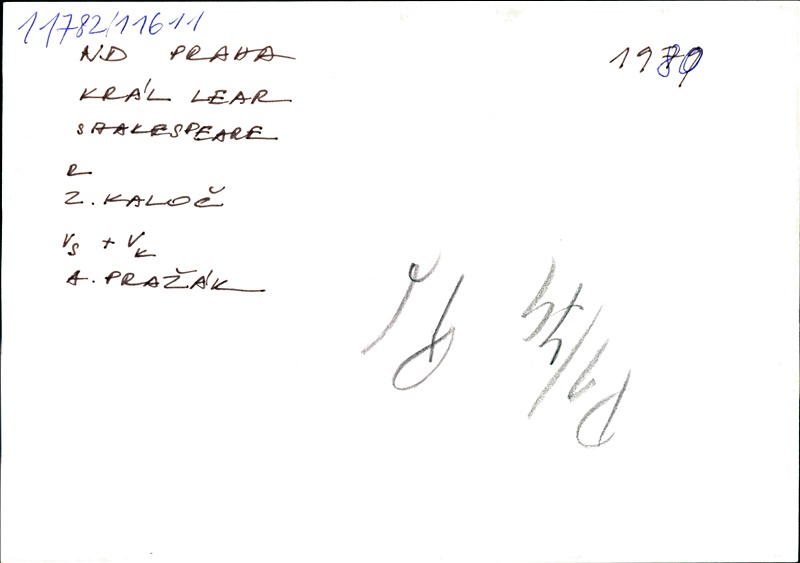 11782/11611
ND PRAHA
KRÁL LEAR
SHAKESPEARE
R
Z. KALOČ
VS + VK
A. PRAŽÁK